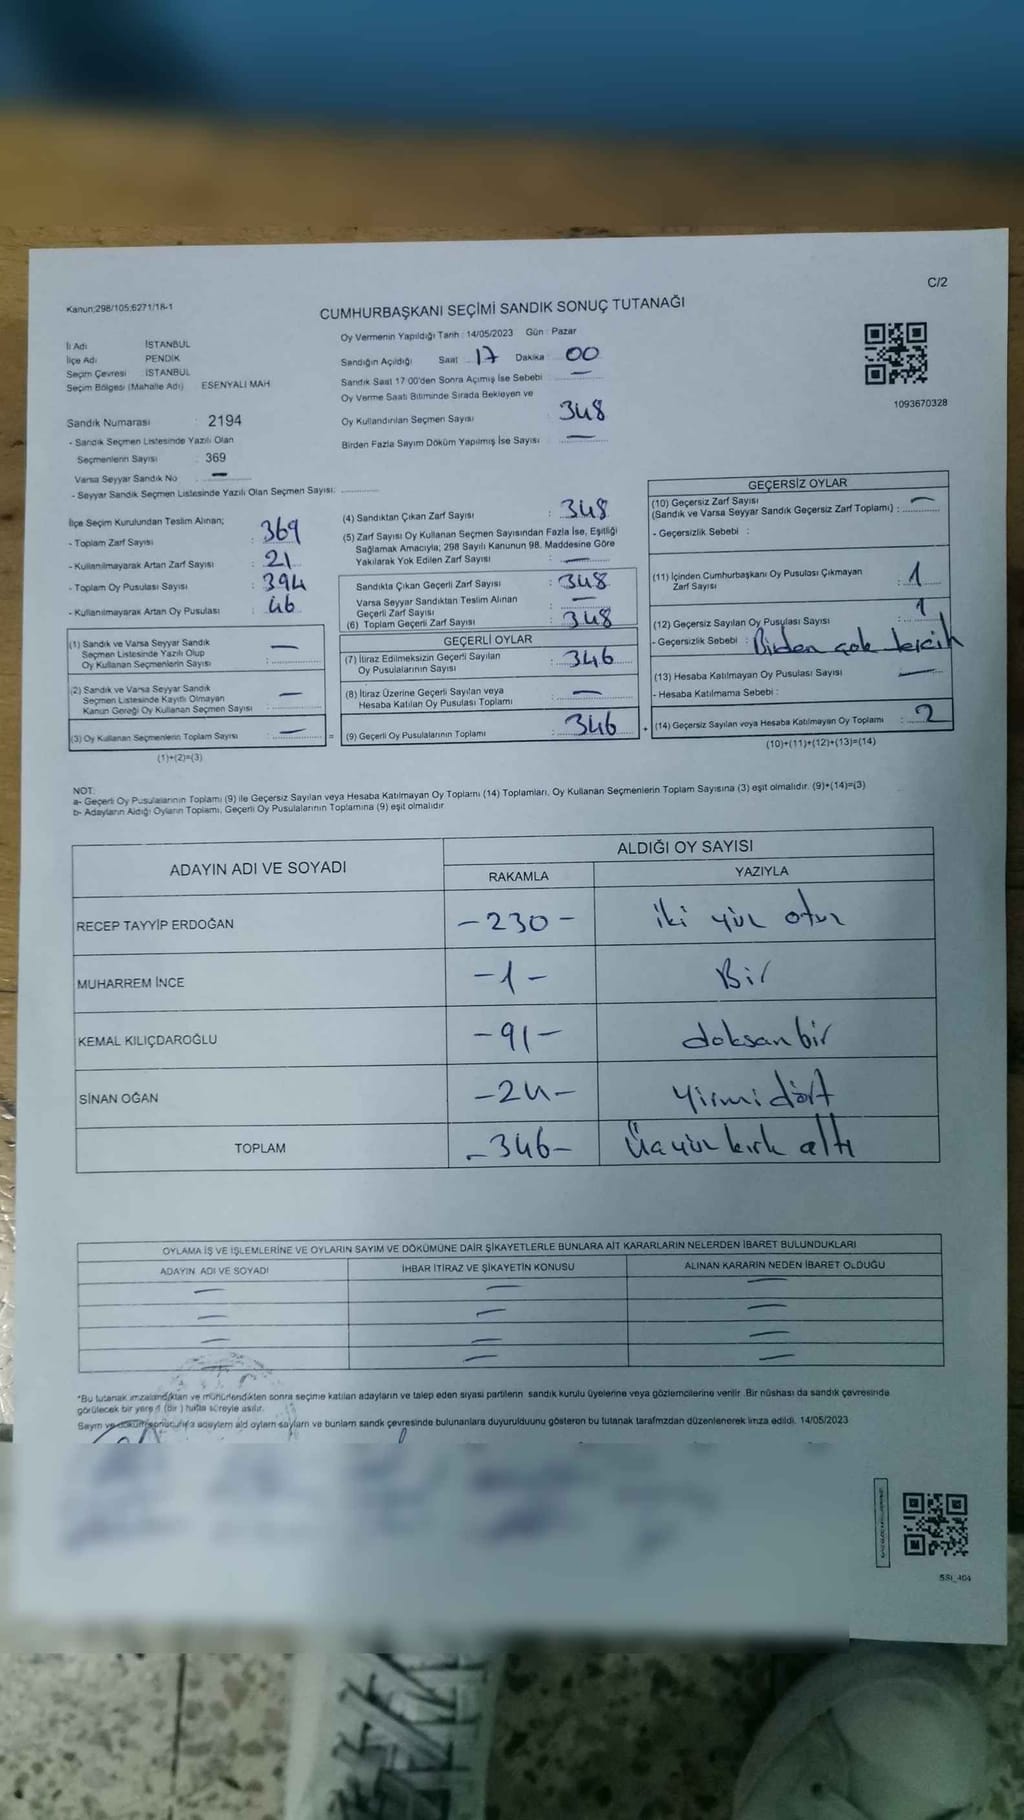 C/2
Kanun:298/105;6271/18-1
CUMHURBAŞKANI SEÇİMİ SANDIK SONUÇ TUTANAĞI
İl Adı İSTANBUL
İlçe Adı PENDİK
Seçim Çevresi İSTANBUL
Seçim Bölgesi (Mahalle Adı) ESENYALI MAH
Oy Vermenin Yapıldığı Tarih : 14/05/2023 Gün : Pazar
Sandığın Açıldığı Saat 17 Dakika 00
Sandık Saat 17:00'den Sonra Açımış İse Sebebi : —
Oy Verme Saati Bitiminde Sırada Bekleyen ve
Oy Kullandırılan Seçmen Sayısı : 348
Birden Fazla Sayım Döküm Yapılmış İse Sayısı : —
1093670328
Sandık Numarası : 2194
- Sandık Seçmen Listesinde Yazılı Olan
Seçmenlerin Sayısı : 369
Varsa Seyyar Sandık No : —
- Seyyar Sandık Seçmen Listesinde Yazılı Olan Seçmen Sayısı:
İlçe Seçim Kurulundan Teslim Alınan;
- Toplam Zarf Sayısı : 369
- Kullanılmayarak Artan Zarf Sayısı : 21
- Toplam Oy Pusulası Sayısı : 394
- Kullanılmayarak Artan Oy Pusulası : 46
(1) Sandık ve Varsa Seyyar Sandık
Seçmen Listesinde Yazılı Olup
Oy Kullanan Seçmenlerin Sayısı : —
(2) Sandık ve Varsa Seyyar Sandık
Seçmen Listesinde Kayıtlı Olmayan
Kanun Gereği Oy Kullanan Seçmen Sayısı : —
(3) Oy Kullanan Seçmenlerin Toplam Sayısı : — =
(1)+(2)=(3)
(4) Sandıktan Çıkan Zarf Sayısı : 348
(5) Zarf Sayısı Oy Kullanan Seçmen Sayısından Fazla İse, Eşitliği
Sağlamak Amacıyla; 298 Sayılı Kanunun 98. Maddesine Göre
Yakılarak Yok Edilen Zarf Sayısı : —
Sandıkta Çıkan Geçerli Zarf Sayısı : 348
Varsa Seyyar Sandıktan Teslim Alınan
Geçerli Zarf Sayısı : —
(6) Toplam Geçerli Zarf Sayısı : 348
GEÇERLİ OYLAR
(7) İtiraz Edilmeksizin Geçerli Sayılan
Oy Pusulalarının Sayısı : 346
(8) İtiraz Üzerine Geçerli Sayılan veya
Hesaba Katılan Oy Pusulası Toplamı : —
(9) Geçerli Oy Pusulalarının Toplamı : 346 +
GEÇERSİZ OYLAR
(10) Geçersiz Zarf Sayısı
(Sandık ve Varsa Seyyar Sandık Geçersiz Zarf Toplamı) : —
- Geçersizlik Sebebi :
(11) İçinden Cumhurbaşkanı Oy Pusulası Çıkmayan
Zarf Sayısı : 1
(12) Geçersiz Sayılan Oy Pusulası Sayısı : 1
- Geçersizlik Sebebi : Birden çok tercih
(13) Hesaba Katılmayan Oy Pusulası Sayısı —
- Hesaba Katılmama Sebebi :
(14) Geçersiz Sayılan veya Hesaba Katılmayan Oy Toplamı : 2
(10)+(11)+(12)+(13)=(14)
NOT:
a- Geçerli Oy Pusulalarının Toplamı (9) ile Geçersiz Sayılan veya Hesaba Katılmayan Oy Toplamı (14) Toplamları, Oy Kullanan Seçmenlerin Toplam Sayısına (3) eşit olmalıdır. (9)+(14)=(3)
b- Adayların Aldığı Oyların Toplamı, Geçerli Oy Pusulalarının Toplamına (9) eşit olmalıdır.
ADAYIN ADI VE SOYADI ALDIĞI OY SAYISI
RAKAMLA YAZIYLA
RECEP TAYYİP ERDOĞAN -230- iki yüz otuz
MUHARREM İNCE -1- Bir
KEMAL KILIÇDAROĞLU -91- doksan bir
SİNAN OĞAN -24- Yirmi dört
TOPLAM -346- Üçyüz kırk altı
OYLAMA İŞ VE İŞLEMLERİNE VE OYLARIN SAYIM VE DÖKÜMÜNE DAİR ŞİKAYETLERLE BUNLARA AİT KARARLARIN NELERDEN İBARET BULUNDUKLARI
ADAYIN ADI VE SOYADI İHBAR İTİRAZ VE ŞİKAYETİN KONUSU ALINAN KARARIN NEDEN İBARET OLDUĞU
— — —
— — —
— — —
— — —
*Bu tutanak imzalandıktan ve mühürlendikten sonra seçime katılan adayların ve talep eden siyasi partilerin sandık kurulu üyelerine veya gözlemcilerine verilir. Bir nüshası da sandık çevresinde
görülecek bir yere 1 (bir ) hafta süreyle asılır.
Sayım ve bunların sandık çevresinde bulunanlara duyurulduunu gösteren bu tutanak tarafımızdan düzenlenerek imza edildi. 14/05/2023
SSI_404